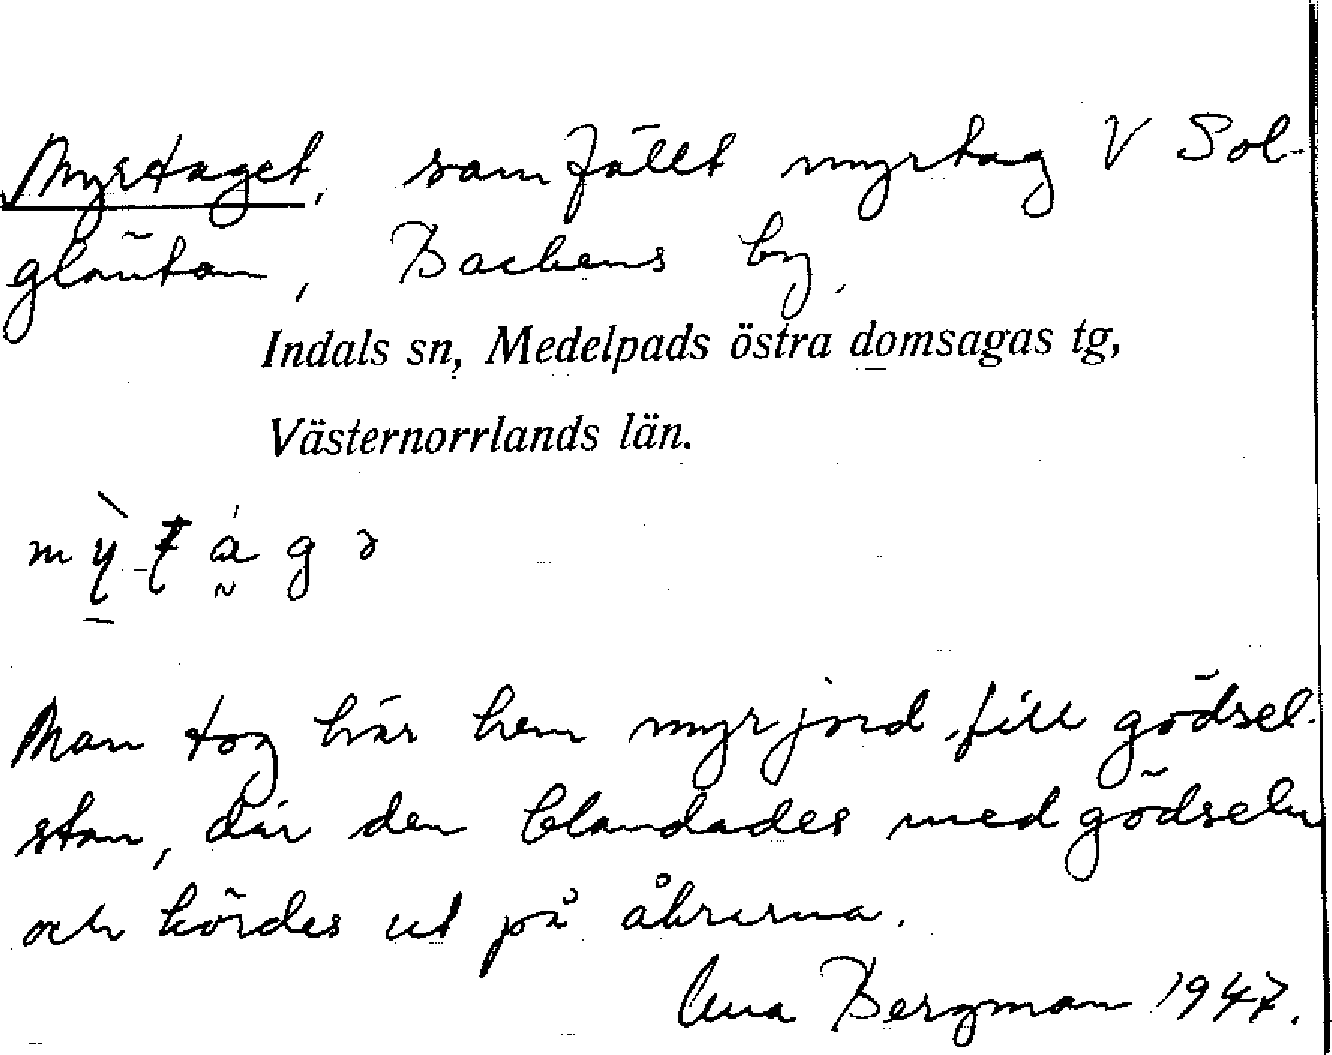 Myrtaget, samfällt myrtag V Sol-
gläntan, Backens by.
Indals sn, Medelpads östra domsagas tg,
Västernorrlands län.
Man tog här hem myrjord till gödsel-
stan, där den blandades med gödseln
och kördes ut på åkrarna.
Bergman 1947.